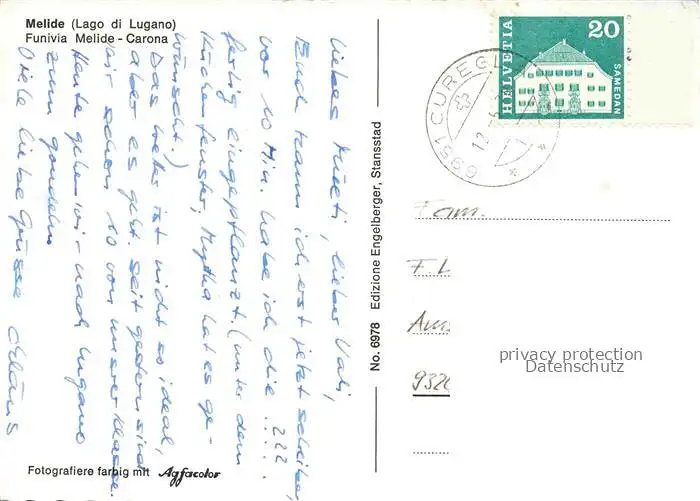 Melide (Lago di Lugano)
Funivia Melide - Carona
liebes Mueti, lieber Vati,
Euch kann ich erst jetzt schreiben,
vor 10 Min. habe ich die ... ???
fertig eingepflanzt. (unter dem
Küchenfenster, Mytha hat es ge-
wünscht.)
Das Wetter ist nicht so ideal,
aber es geht. Seit gestern sind
wir schon 10 von unserer Klasse.
Heute gehen wir nach Lugano
zum gondeln
Viele liebe Grüsse
Fotografiere farbig mit Agfacolor
No. 6978 Edizione Engelberger, Stansstad
HELVETIA
20
SAMEDAN
6951 CUREGL
12
Fam.
F. L
Am
932
privacy protection
Datenschutz